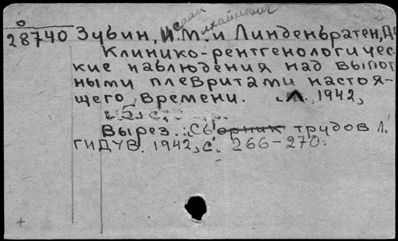 о
28740 Зубин, И.М. и Линденбратен, Д
Исаак Михайлович
Клинико-рентгенологичес-
кие наблюдения над выпот-
ными плевритами настоя-
щего времени. Л. 1942,
Вырез.: Сборник трудов Л.
ГИДУВ. 1942, с. 266-270.
+